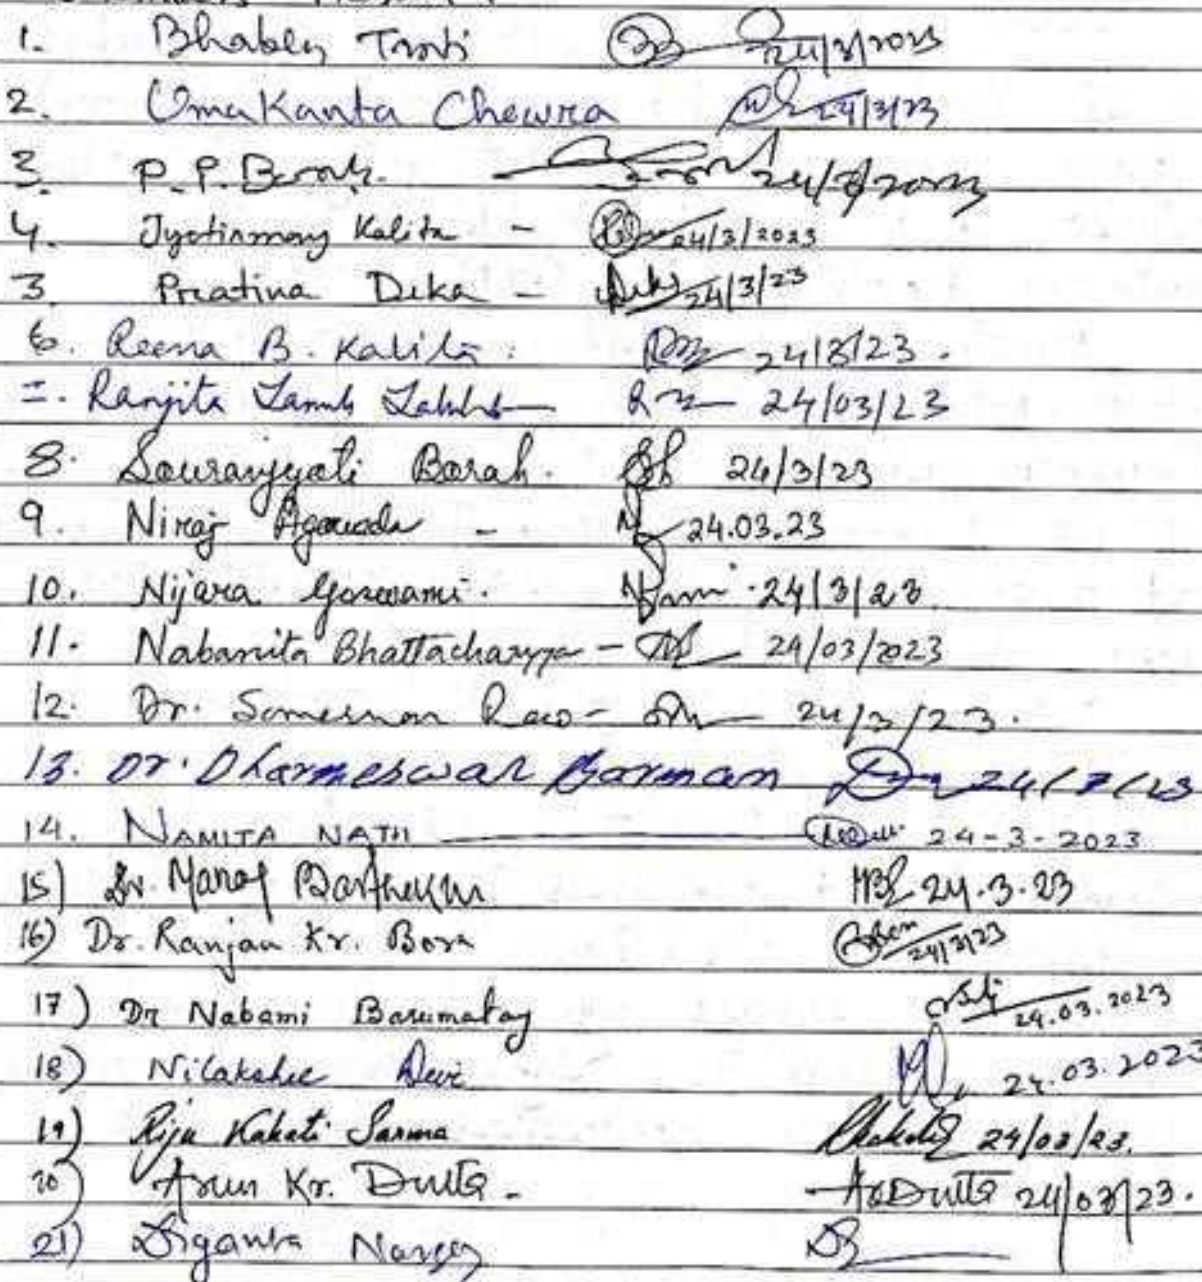 1. Bhabesh Tanti 24/3/2023
2. Umakanta Chewra 24/3/23
3. P.P. Borah. 24/3/2023
4. Jyotirmoy Kalita - 24/3/2023
3. Pratima Deka - Deka 24/3/23
6. Reena B. Kalita. 24/3/23.
Ranjita 24/03/23
8. Souravjyoti Borah. 24/3/23
9. Niraj Agarwala - 24.03.23
10. Nijara Goswami. 24/3/23.
11. Nabanita Bhattacharyya - 24/03/2023
12. Dr. - 24/3/23.
13. Dr. Dharmeswar Barman 24/3/23
14. NAMITA NATH 24-3-2023
15) Dr. Manoj 24.3.23
16) Dr. Ranjan Kr. Bora 24/3/23
17) Dr Nabami Basumatary 24.03.2023
18) Nilakshee Devi 24.03.2023
19) Riju Kakati Sarma 24/03/23.
20) Arun Kr. Dutta. Dutta 24/03/23.
21) Diganta